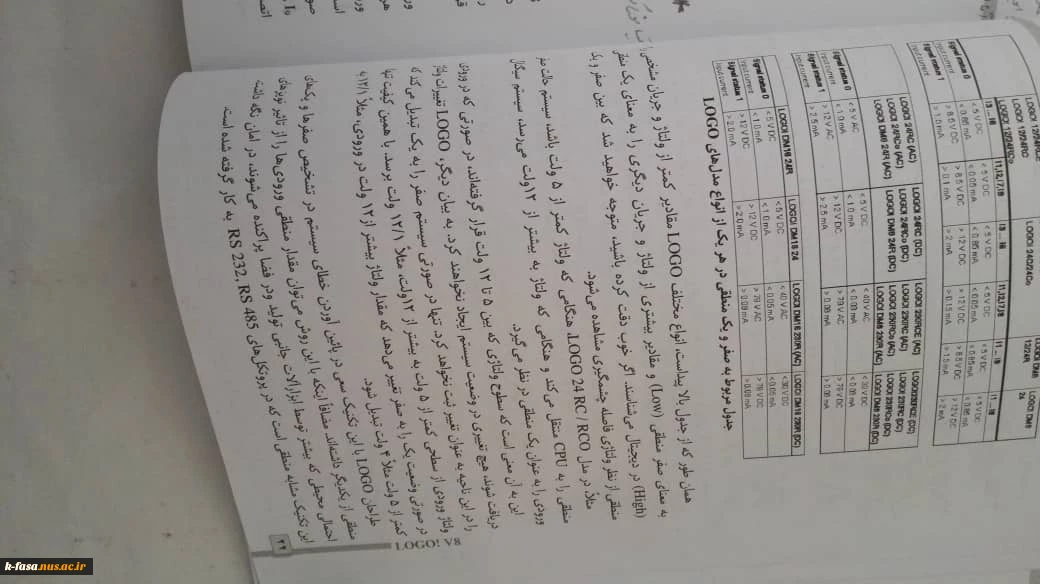 LOGO! V8
۲۲
LOGO! 12/24RCE
LOGO! 12/24RC
LOGO! 12/24RCo
LOGO! 24/24C/24Co
LOGO! DM8 12/24R
LOGO! DM8 24
I3 ... I6
I1,I2,I7,I8
I3 ... I6
I1,I2,I7,I8
I1 ... I8
I1 ... I8
Signal status 0
Input current
< 5 V DC
< 0.85 mA
< 5 V DC
< 0.05 mA
< 5 V DC
< 0.85 mA
< 5 V DC
< 5 V DC
< 0.85 mA
< 5 V DC
Signal status 1
Input current
> 8.5 V DC
> 1.5 mA
> 8.5 V DC
> 0.1 mA
> 12 V DC
> 2 mA
> 12 V DC
> 0.15 mA
> 8.5 V DC
> 1.5 mA
> 12 V DC
> 2 mA
LOGO! 24RC (AC)
LOGO! 24RCo (AC)
LOGO! DM8 24R (AC)
LOGO! 24RC (DC)
LOGO! 24RCo (DC)
LOGO! DM8 24R (DC)
LOGO! 230RCE (AC)
LOGO! 230RC (AC)
LOGO! 230RCo (AC)
LOGO! DM8 230R (AC)
LOGO! 230RCE (DC)
LOGO! 230RC (DC)
LOGO! 230RCo (DC)
LOGO! DM8 230R (DC)
Signal status 0
Input current
< 5 V AC
< 1.0 mA
< 5 V DC
< 1.0 mA
< 40 V AC
< 0.03 mA
< 30 V DC
< 0.03 mA
Signal status 1
Input current
> 12 V AC
> 2.5 mA
> 12 V DC
> 2.5 mA
> 79 V AC
> 0.08 mA
> 79 V DC
> 0.08 mA
LOGO! DM16 24R
LOGO! DM16 24
LOGO! DM16 230R (AC)
LOGO! DM16 230R (DC)
Signal status 0
Input current
< 5 V DC
< 1.0 mA
< 5 V DC
< 1.0 mA
< 40 V AC
< 0.05 mA
< 30 V DC
< 0.05 mA
Signal status 1
Input current
> 12 V DC
> 2.0 mA
> 12 V DC
> 2.0 mA
> 79 V AC
> 0.08 mA
> 79 V DC
> 0.08 mA
جدول مربوط به صفر و یک منطقی در هر یک از انواع مدل‌های LOGO
همان طور که از جدول بالا پیداست، انواع مختلف LOGO مقادیر کمتر از ولتاژ و جریان مشخص را
به معنای صفر منطقی (Low) و مقادیر بیشتری از ولتاژ و جریان دیگری را به معنای یک منطقی
(High) در دیجیتال می‌شناسند. اگر خوب دقت کرده باشید، متوجه خواهید شد که بین صفر و یک
منطقی از نظر ولتاژی فاصله چشمگیری مشاهده می‌شود.
مثلاً، در مدل LOGO 24 RC / RCO، هنگامی که ولتاژ کمتر از ۵ ولت باشد، سیستم حالت صفر
منطقی را به CPU منتقل می‌کند و هنگامی که ولتاژ به بیشتر از ۱۲ ولت می‌رسد، سیستم سیگنال
ورودی را به عنوان یک منطقی در نظر می‌گیرد.
این به آن معنی است که سطوح ولتاژی که بین ۵ تا ۱۲ ولت قرار گرفته‌اند، در صورتی که در ورودی
دریافت شوند، هیچ تغییری در وضعیت سیستم ایجاد نخواهند کرد. به بیان دیگر، LOGO تغییرات ولتاژ
را در این ناحیه به عنوان تغییر ثبت نخواهد کرد. تنها در صورتی سیستم صفر را به یک تبدیل می‌کند که
ولتاژ ورودی از سطحی کمتر از ۵ ولت به بیشتر از ۱۲ ولت، مثلاً ۱۲/۱ ولت برسد. با همین کیفیت تنها
در صورتی وضعیت یک را به صفر تغییر می‌دهد که مقدار ولتاژ بیشتر از ۱۲ ولت در ورودی، مثلاً ۱۲/۱ به
کمتر از ۵ ولت مثلاً ۴ ولت تبدیل شود.
طراحان LOGO با این تکنیک سعی در پائین آوردن خطای سیستم در تشخیص صفرها و یک‌های
منطقی از یکدیگر داشته‌اند. مضافا اینکه با این روش می‌توان مقدار منطقی ورودی‌ها را از تاثیر نویزهای
احتمالی محیطی که بیشتر توسط ابزارآلات جانبی تولید و در فضا پراکنده می‌شوند، در امان نگه داشت.
این تکنیک مشابه منطقی است که در پروتکل‌های RS 232, RS 485 به کار گرفته شده است.
k-fasa.nus.ac.ir